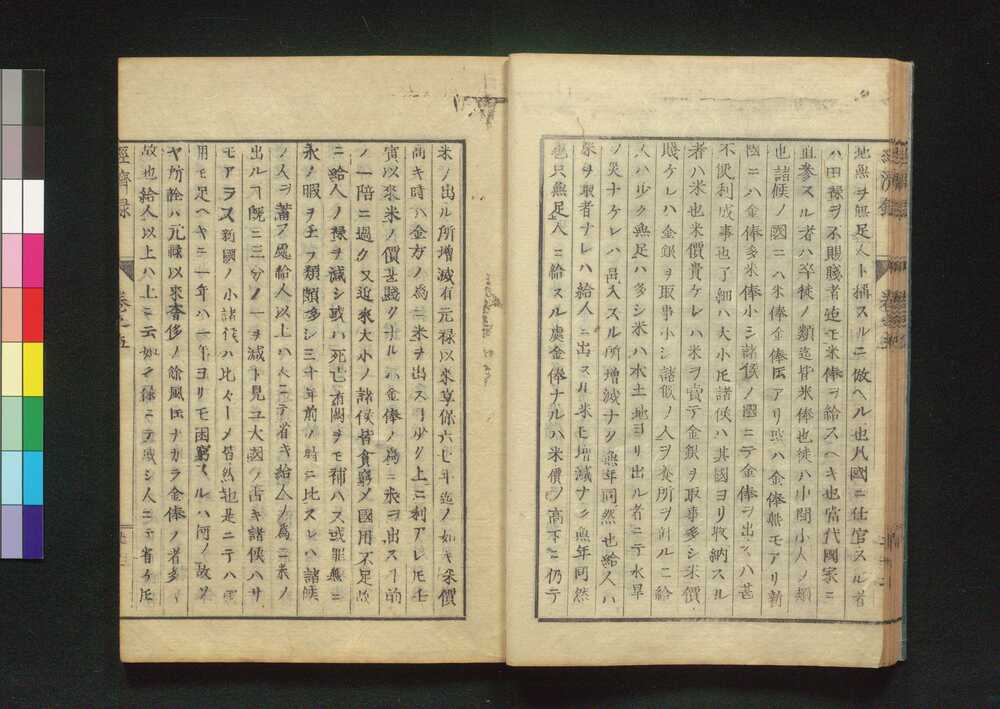 地無ヲ無足人ト稱スルニ倣ヘル也凡國ニ仕官スル者
ハ田祿ヲ不賜賤者迄モ米俸ヲ給スヘキ也當代國家ニ
直参スル者ハ卒徒ノ類迄皆米俸也徒ハ中間小人ノ類
也諸候ノ國ニハ米俸金俸氐アリ或ハ金俸無モアリ新
國ニハ金俸多米俸小シ諸候ノ國ニテ金俸ヲ出スハ甚
不便利成事也了細ハ大小氐諸候ハ其國ヨリ收納スル
者ハ米也米價貴ケレハ米ヲ賣テ金銀ヲ取事多シ米價
賤ケレハ金銀ヲ取事小シ諸候ノ人ヲ養所ヲ計ルニ給
人ハ少ク無足ハ多シ米ハ水土地ヨリ出ル者ニテ水旱
ノ災ナケレハ邑入スル所増減ナク無年同然也給人ハ
米ヲ取者ナレハ給人ニ出スル米モ増減ナク無年同然
也只無足人ニ給スル處金俸ナルハ米價ノ高下ニ仍テ
米ノ出ル所増減有元禄以來享保六七年迄ノ如キ米價
高キ時ハ金方ノ為ニ米ヲ出スヿ少ク上ニ利アレ氐士
寅以來米ノ價甚賤クナルハ金俸ノ為ニ米ヲ出スヿ前
ノ一陪ニ過ク又近來大小ノ諸候皆貪窮〆國用不足故
ニ給人ノ祿ヲ減シ或ハ死亡有闕ヲモ補ハス或罪無ニ
永ノ暇ヲ玉フ類頗多シ三十年前ノ時ニ比スレハ諸候
ノ人ヲ蓄フ處給人以上ハ人ニテ省キ給人ノ為ニ米ノ
出ルヿ既ニ三分ノ一ヲ減ト見ユ大國ノ舌キ諸候ハサ
モアラス新國ノ小諸候ハ比々〆皆然也是ニテハ國
用モ足ヘキニ一年ハ一年ヨリモ困窮スルハ何ノ故ソ
ヤ所詮ハ元禄以來奢侈ノ餘風氐ナカラ金俸ノ者多キ
故也給人以上ハ上ニ云如ク祿ニテ減シ人ニテ省ケ氐
經濟録
卷之五